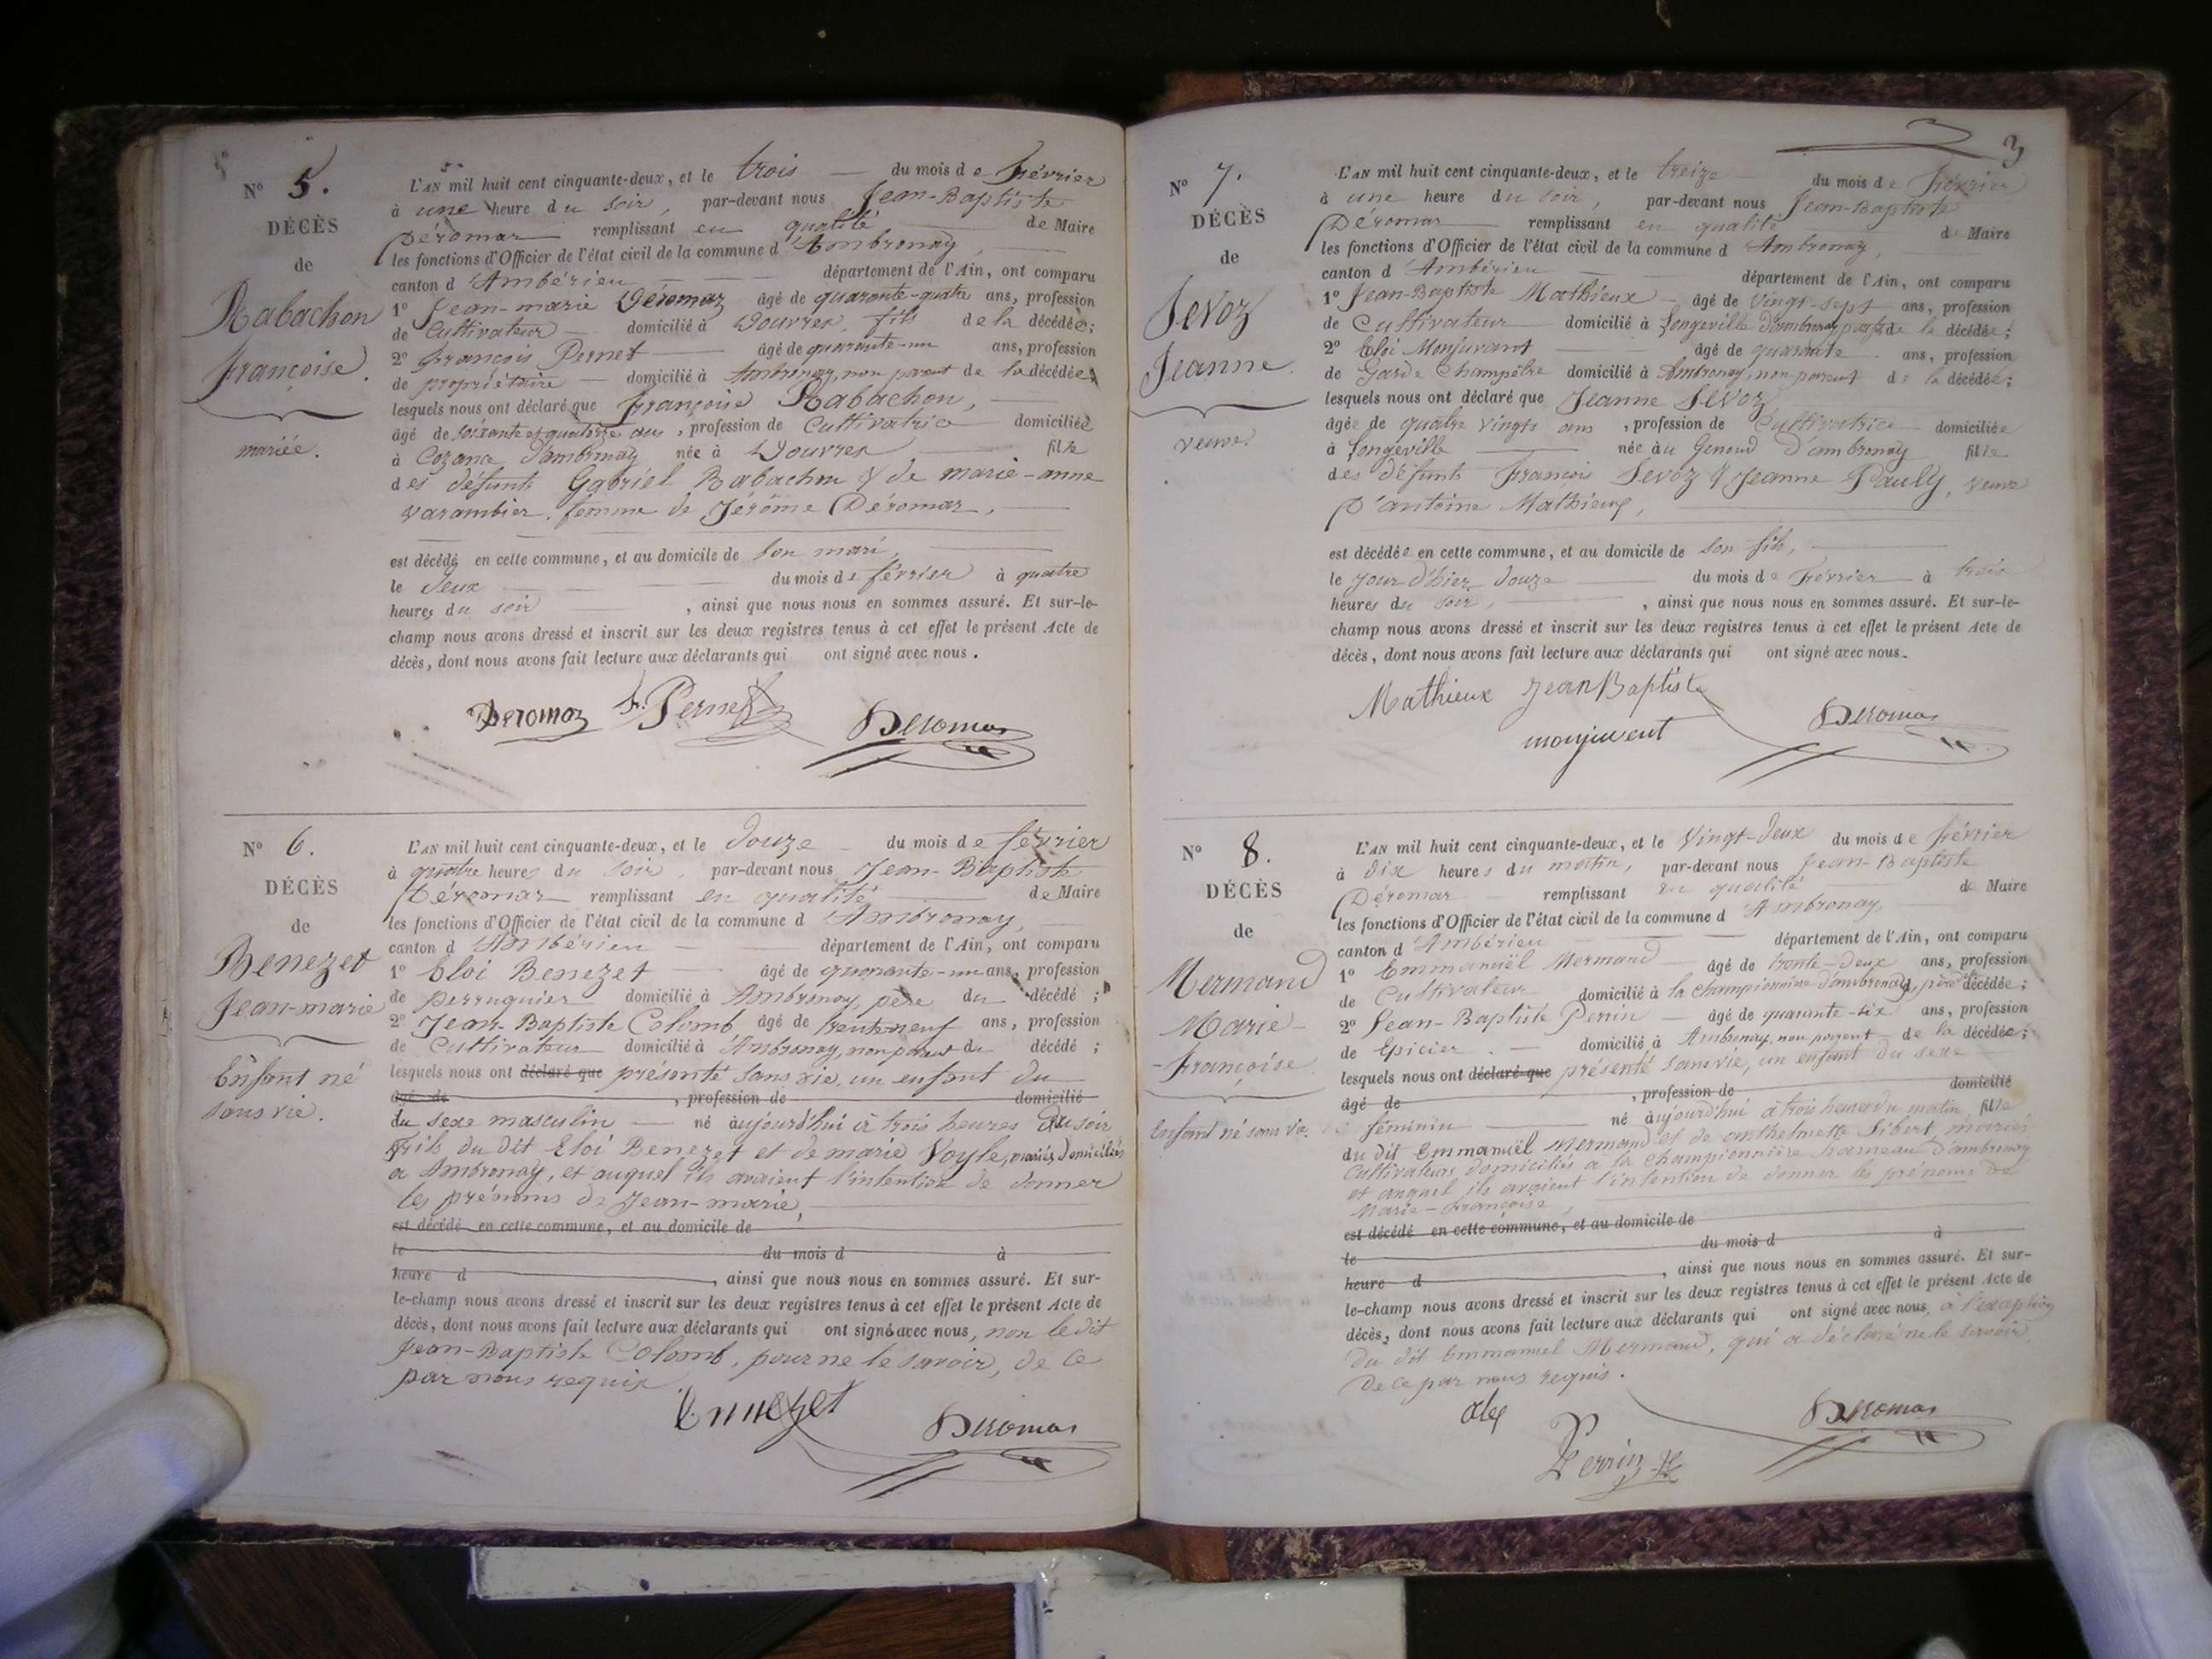 N° 5.
DÉCÈS
de
Rabachon
Françoise.
mariée.
L'AN mil huit cent cinquante-deux, et le trois du mois de Février
à une heure du soir, par-devant nous Jean-Baptiste
Déromas remplissant en qualité de Maire
les fonctions d'Officier de l'état civil de la commune d'Ambronay,
canton d'Ambérieu département de l'Ain, ont comparu
1° Jean-marie Déromas âgé de quarante-quatre ans, profession
de Cultivateur domicilié à Douvres, fils de la décédée;
2° François Pernet âgé de quarante-un ans, profession
de propriétaire domicilié à Ambronay, non parent de la décédée;
lesquels nous ont déclaré que Françoise Rabachon,
âgé de soixante et quatorze ans, profession de Cultivatrice domiciliée
à Cozance d'ambronay née à Douvres fille
des défunts Gabriel Rabachon & de marie-anne
Varambier, femme de Jérôme Déromas,
est décédé en cette commune, et au domicile de son mari,
le deux du mois de février à quatre
heures du soir, ainsi que nous nous en sommes assuré. Et sur-le-
champ nous avons dressé et inscrit sur les deux registres tenus à cet effet le présent Acte de
décès, dont nous avons fait lecture aux déclarants qui ont signé avec nous.
Deromas F. Pernet Deromas
N° 6.
DÉCÈS
de
Benezet
Jean-marie
Enfant né
sans vie.
L'AN mil huit cent cinquante-deux, et le douze du mois de février
à quatre heures du soir, par-devant nous Jean-Baptiste
Déromas remplissant en qualité de Maire
les fonctions d'Officier de l'état civil de la commune d'Ambronay,
canton d'Ambérieu département de l'Ain, ont comparu
1° Eloi Benezet âgé de quarante-un ans, profession
de perruquier domicilié à Ambronay, père du décédé;
2° Jean-Baptiste Colomb âgé de trente neuf ans, profession
de Cultivateur domicilié à Ambronay, non parent du décédé;
lesquels nous ont déclaré que présenté sans vie, un enfant du
âgé de , profession de domicilié
du sexe masculin né aujourd'hui à trois heures du soir
Fils du dit Eloi Benezet et de marie Voyle, mariés domiciliés
a Ambronay, et auquel ils avaient l'intention de donner
les prénoms de Jean-marie,
est décédé en cette commune, et au domicile de
le du mois d à
heure d , ainsi que nous nous en sommes assuré. Et sur-
le-champ nous avons dressé et inscrit sur les deux registres tenus à cet effet le présent Acte de
décès, dont nous avons fait lecture aux déclarants qui ont signé avec nous, non le dit
Jean-Baptiste Colomb, pour ne le savoir, de ce
par nous requis
Deromas
3
N° 7.
DÉCÈS
de
Sevoz
Jeanne.
veuve.
L'AN mil huit cent cinquante-deux, et le treize du mois de Février
à une heure du soir, par-devant nous Jean-Baptiste
Déromas remplissant en qualité de Maire
les fonctions d'Officier de l'état civil de la commune d'Ambronay,
canton d'Ambérieu département de l'Ain, ont comparu
1° Jean-Baptiste Mathieux âgé de vingt-sept ans, profession
de Cultivateur domicilié à Longeville d'ambronay, de la décédée;
2° Eloi Monjuvent âgé de quarante ans, profession
de Garde Champêtre domicilié à Ambronay, non parent de la décédée;
lesquels nous ont déclaré que Jeanne Sevoz
âgée de quatre vingts ans, profession de Cultivatrice domiciliée
à Longeville née au Genoud d'ambronay fille
des défunts François Sevoz & Jeanne Pauly, veuve
D'antoine Mathieux,
est décédée en cette commune, et au domicile de son fils,
le jour d'hier douze du mois de Février à trois
heures du soir, ainsi que nous nous en sommes assuré. Et sur-le-
champ nous avons dressé et inscrit sur les deux registres tenus à cet effet le présent Acte de
décès, dont nous avons fait lecture aux déclarants qui ont signé avec nous.
Mathieux Jean Baptiste
Deromas
monjuvent
N° 8.
DÉCÈS
de
Mermand
Marie-
-Françoise.
Enfant né sans vie.
L'AN mil huit cent cinquante-deux, et le Vingt-deux du mois de Février
à dix heures du matin, par-devant nous Jean-Baptiste
Déromas remplissant en qualité de Maire
les fonctions d'Officier de l'état civil de la commune d'Ambronay,
canton d'Ambérieu département de l'Ain, ont comparu
1° Emmanuël Mermand âgé de trente-deux ans, profession
de Cultivateur domicilié à la Championnière d'ambronay, père décédée;
2° Jean-Baptiste Perrin âgé de quarante-six ans, profession
de Epicier domicilié à Ambronay, non parent de la décédée;
lesquels nous ont déclaré que présenté sans vie, un enfant du sexe
âgé de , profession de domicilié
féminin né aujourd'hui à trois heures du matin, fille
du dit Emmanuël Mermand et de anthelmette Sibert, mariés
Cultivateurs, domiciliés a la Championnière hameau d'ambronay
et auquel ils avaient l'intention de donner les prénoms de
Marie-Françoise,
est décédé en cette commune, et au domicile de
le du mois d à
heure d , ainsi que nous nous en sommes assuré. Et sur-
le-champ nous avons dressé et inscrit sur les deux registres tenus à cet effet le présent Acte de
décès, dont nous avons fait lecture aux déclarants qui ont signé avec nous, à l'exception
du dit Emmanuel Mermand, qui a déclaré ne le savoir,
de ce par nous requis.
Deromas
Perrin